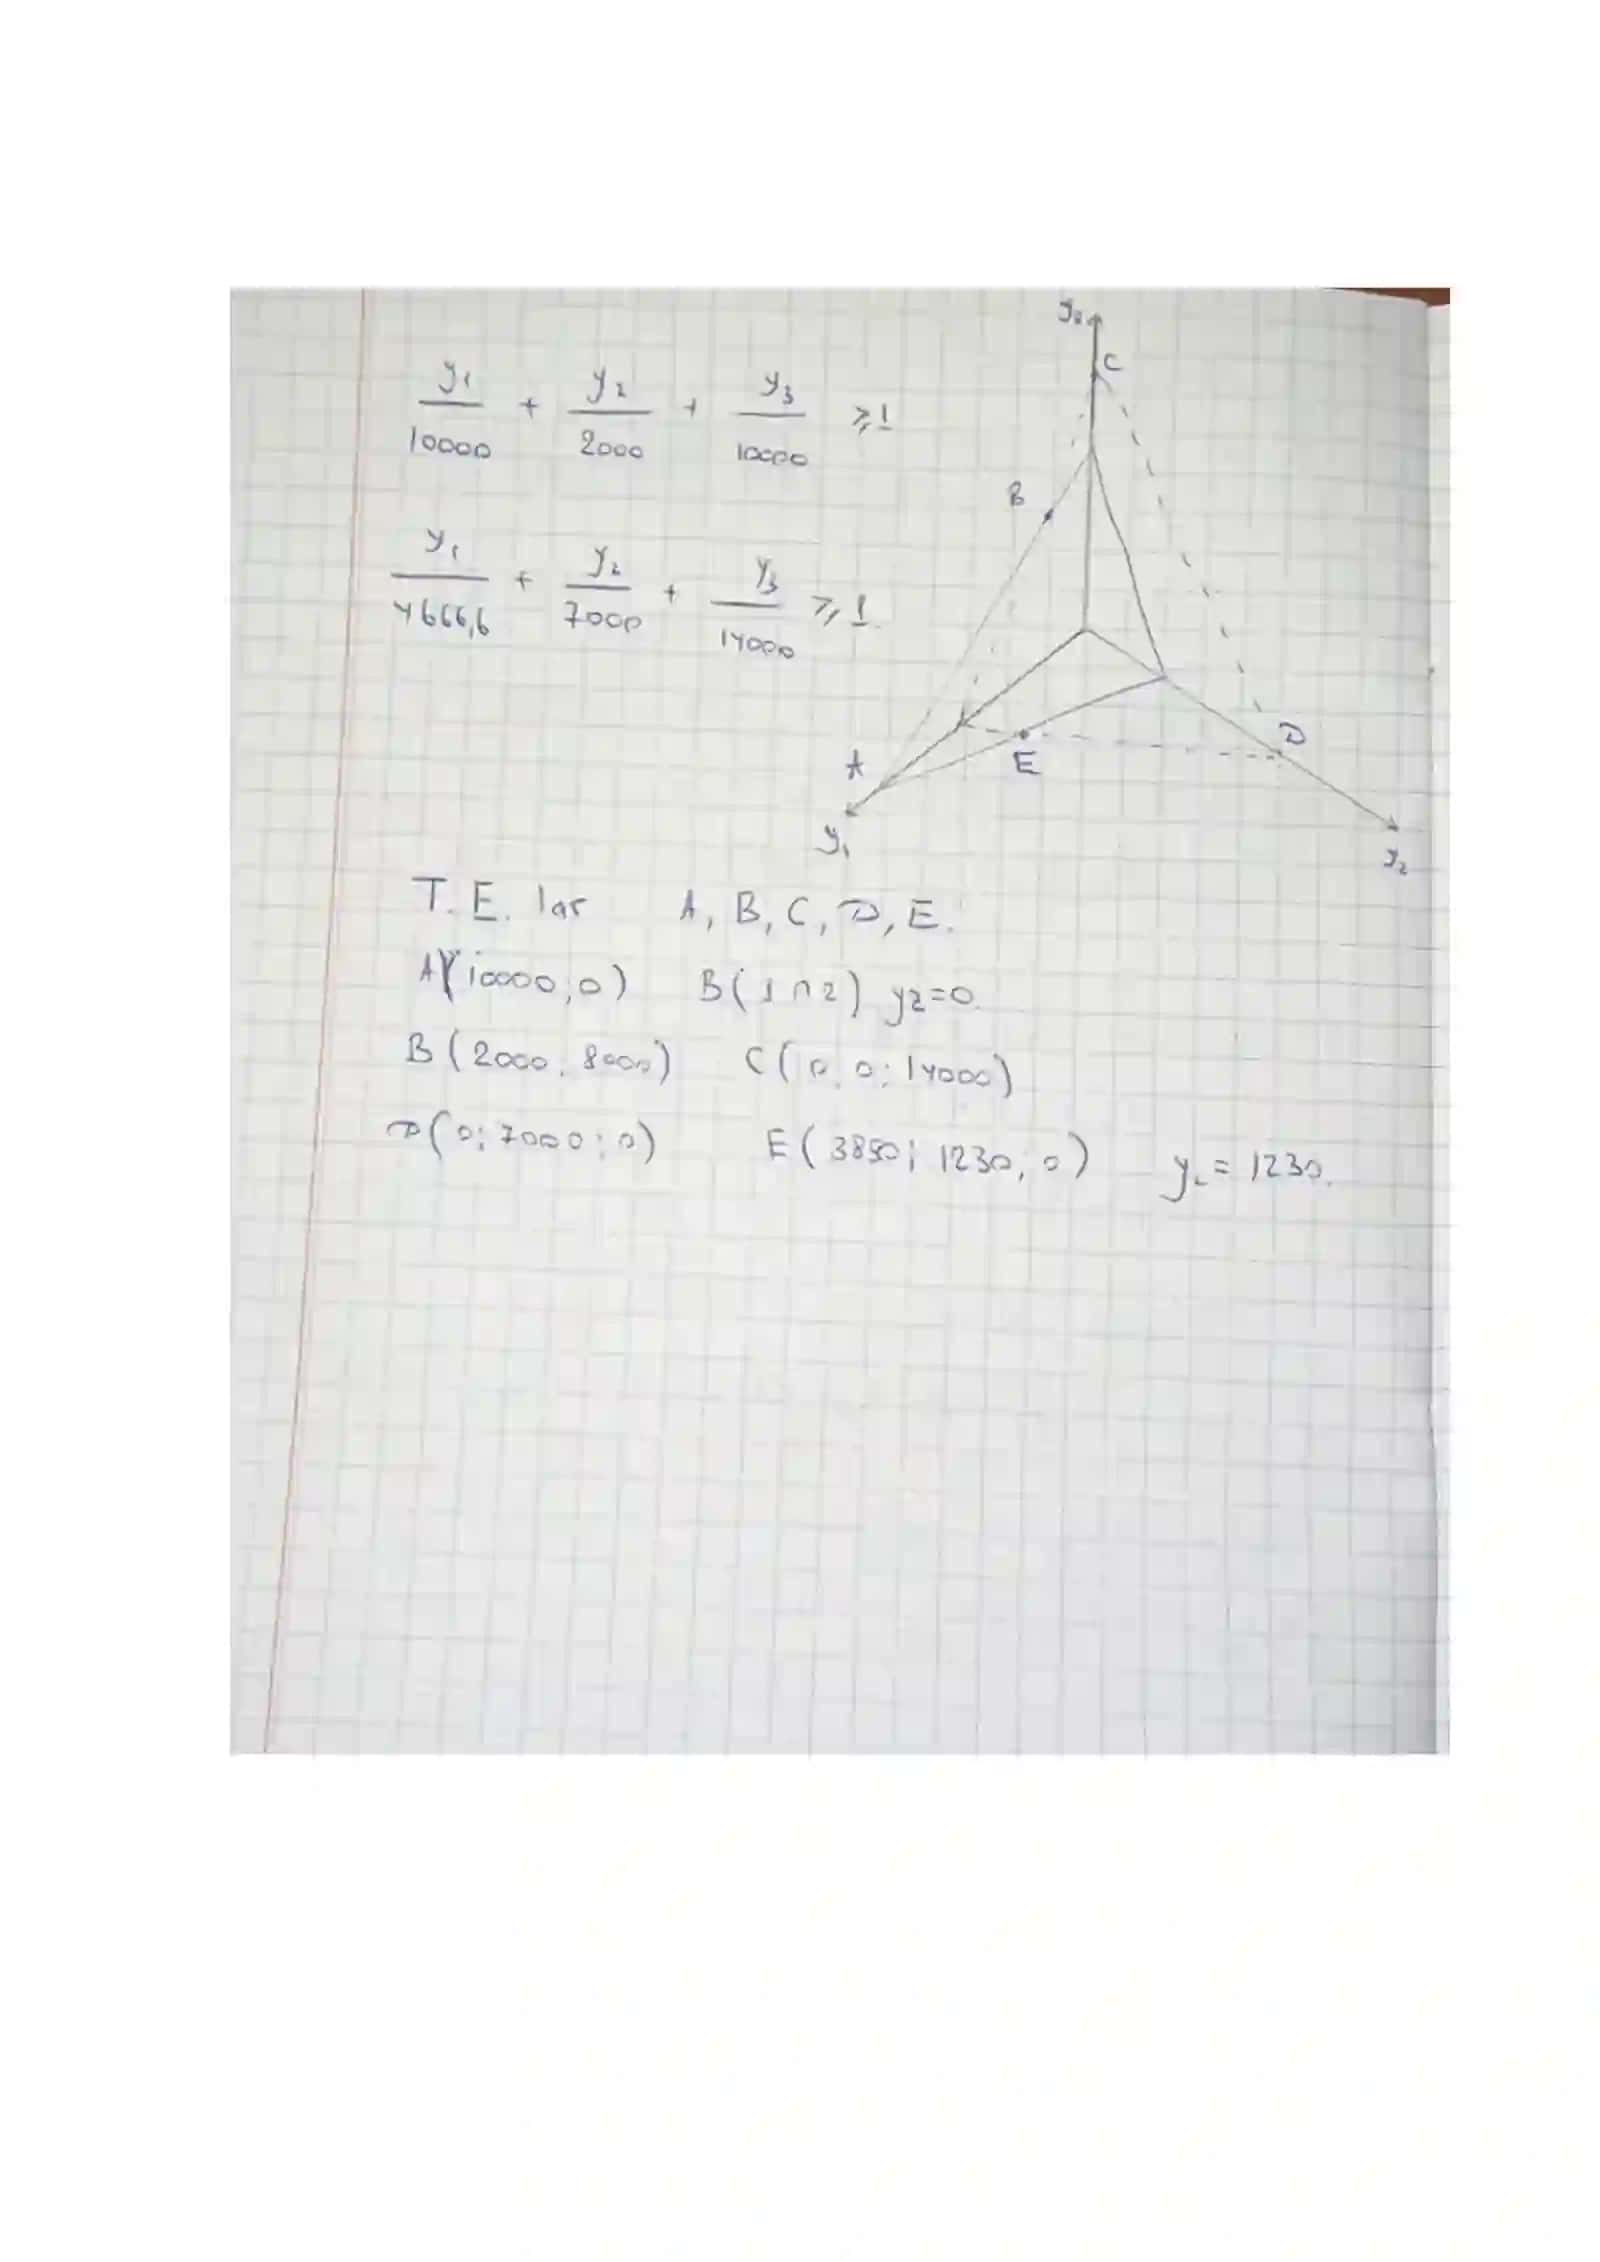 y₃
C
y₁/10000 + y₂/2000 + y₃/10000 ≥ 1
B
y₁/4666,6 + y₂/7000 + y₃/14000 ≥ 1
D
A E
y₁ y₂
T.E. lar A, B, C, D, E.
A(10000;0) B(1∩2) y₂=0.
B(2000; 8000) C(0,0;14000)
D(0;7000;0) E(3850; 1230, 0) y₂=1230.